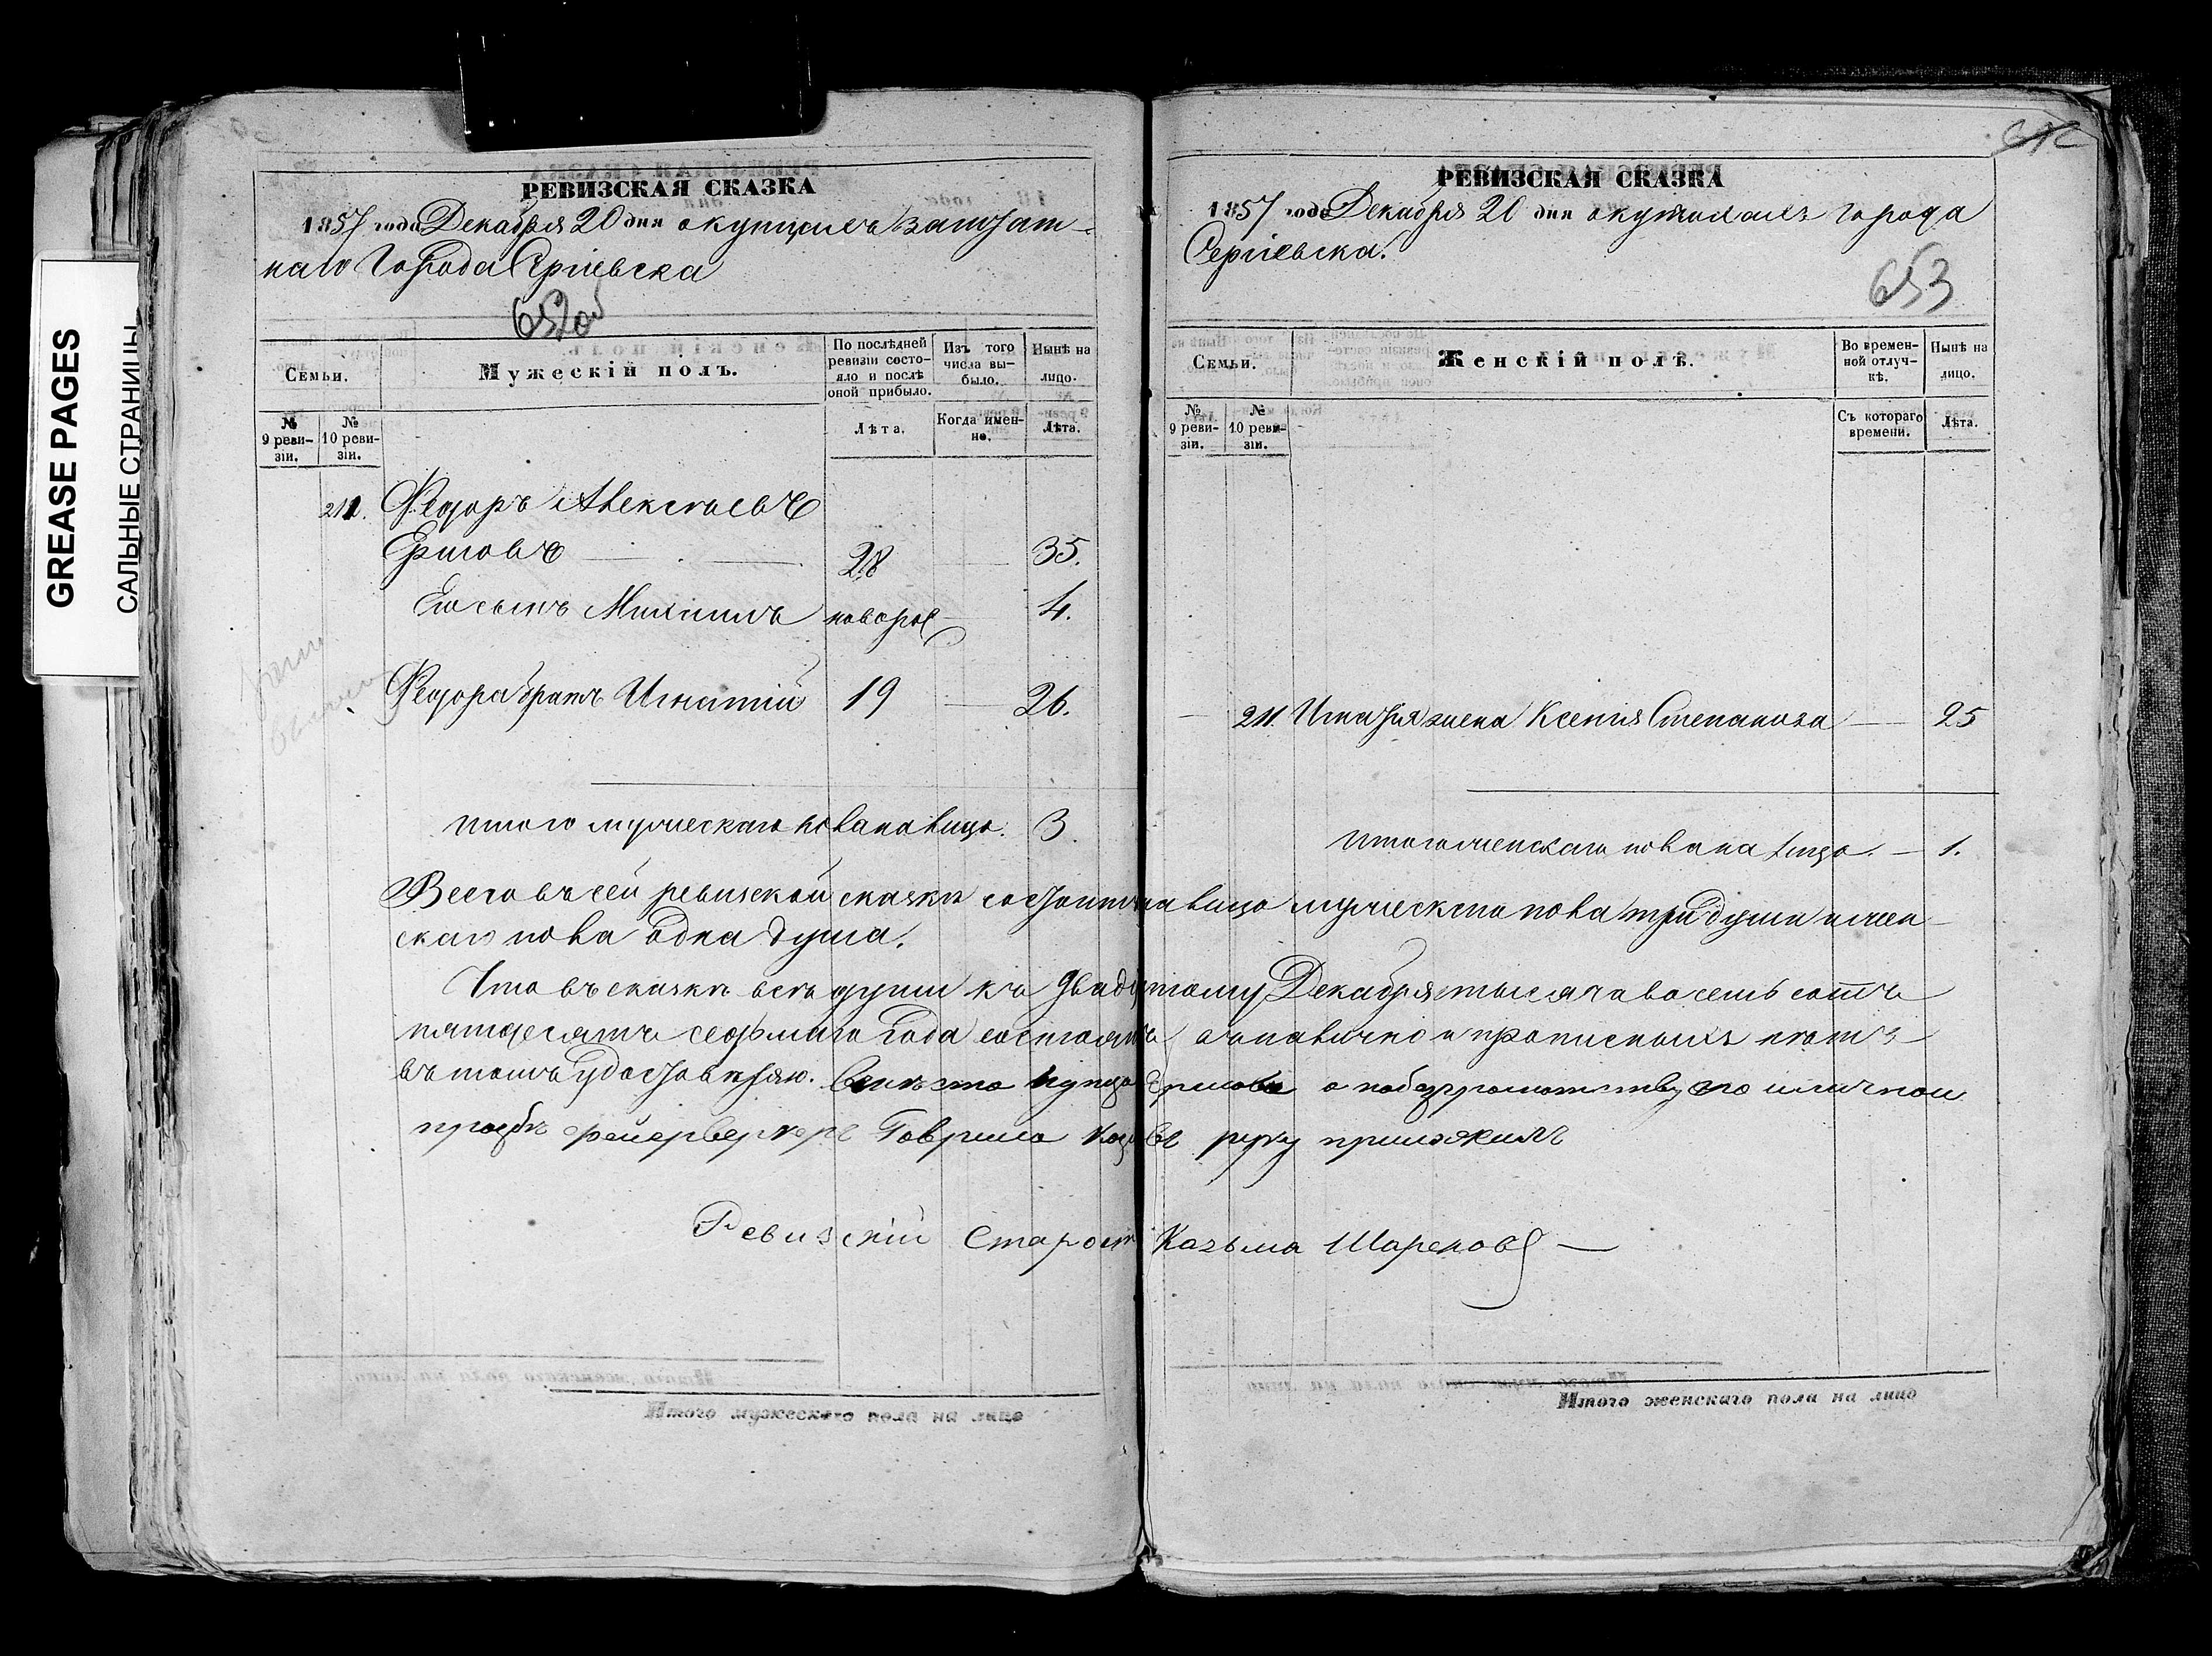 GREASE PAGES
САЛЬНЫЕ СТРАНИЦЫ
РЕВИЗСКАЯ СКАЗКА
1857 года Декабря 20 дня о купцахъ заштат-
наго Города Сергіевска
652об
Семьи.
Мужескій полъ.
По послѣдней ревизіи состояло и послѣ оной прибыло.
Изъ того числа выбыло.
Нынѣ на лицо.
№ 9 ревизіи.
№ 10 ревизіи.
Лѣта.
Когда именно.
Лѣта.
211. Ѳедоръ Алексѣевъ
Ершовъ 28 35.
Его сынъ Михаилъ новорож 4.
Ѳедора братъ Игнатій 19 26.
Итого мужескаго пола на лицо. 3.
РЕВИЗСКАЯ СКАЗКА
1857 года Декабря 20 дня о купчихахъ города
Сергіевска.
653
Семьи.
Женскій полъ.
Во временной отлучкѣ.
Нынѣ на лицо.
№ 9 ревизіи.
№ 10 ревизіи.
Съ котораго времени.
Лѣта.
211. Игнатія жена Ксенія Степанова 25
Итого женскаго пола на лицо. — 1.
Всего въ сей ревизской сказкѣ состоитъ на лицо мужеска пола три души и жен-
скаго пола одна душа.
Что въ сказкѣ всѣ души къ двадцатому Декабря тысяча восемь сотъ
пятдесятъ седьмаго года состоятъ на лично и прописныхъ нѣтъ
въ томъ удостовѣряю. Вмѣсто купца Ершова по безграмотству его и личной
прозбѣ фейерверкеръ Гаврила руку приложилъ
Ревизскій Староста Казьма Шареповъ
Итого мужескаго пола на лицо
Итого женскаго пола на лицо